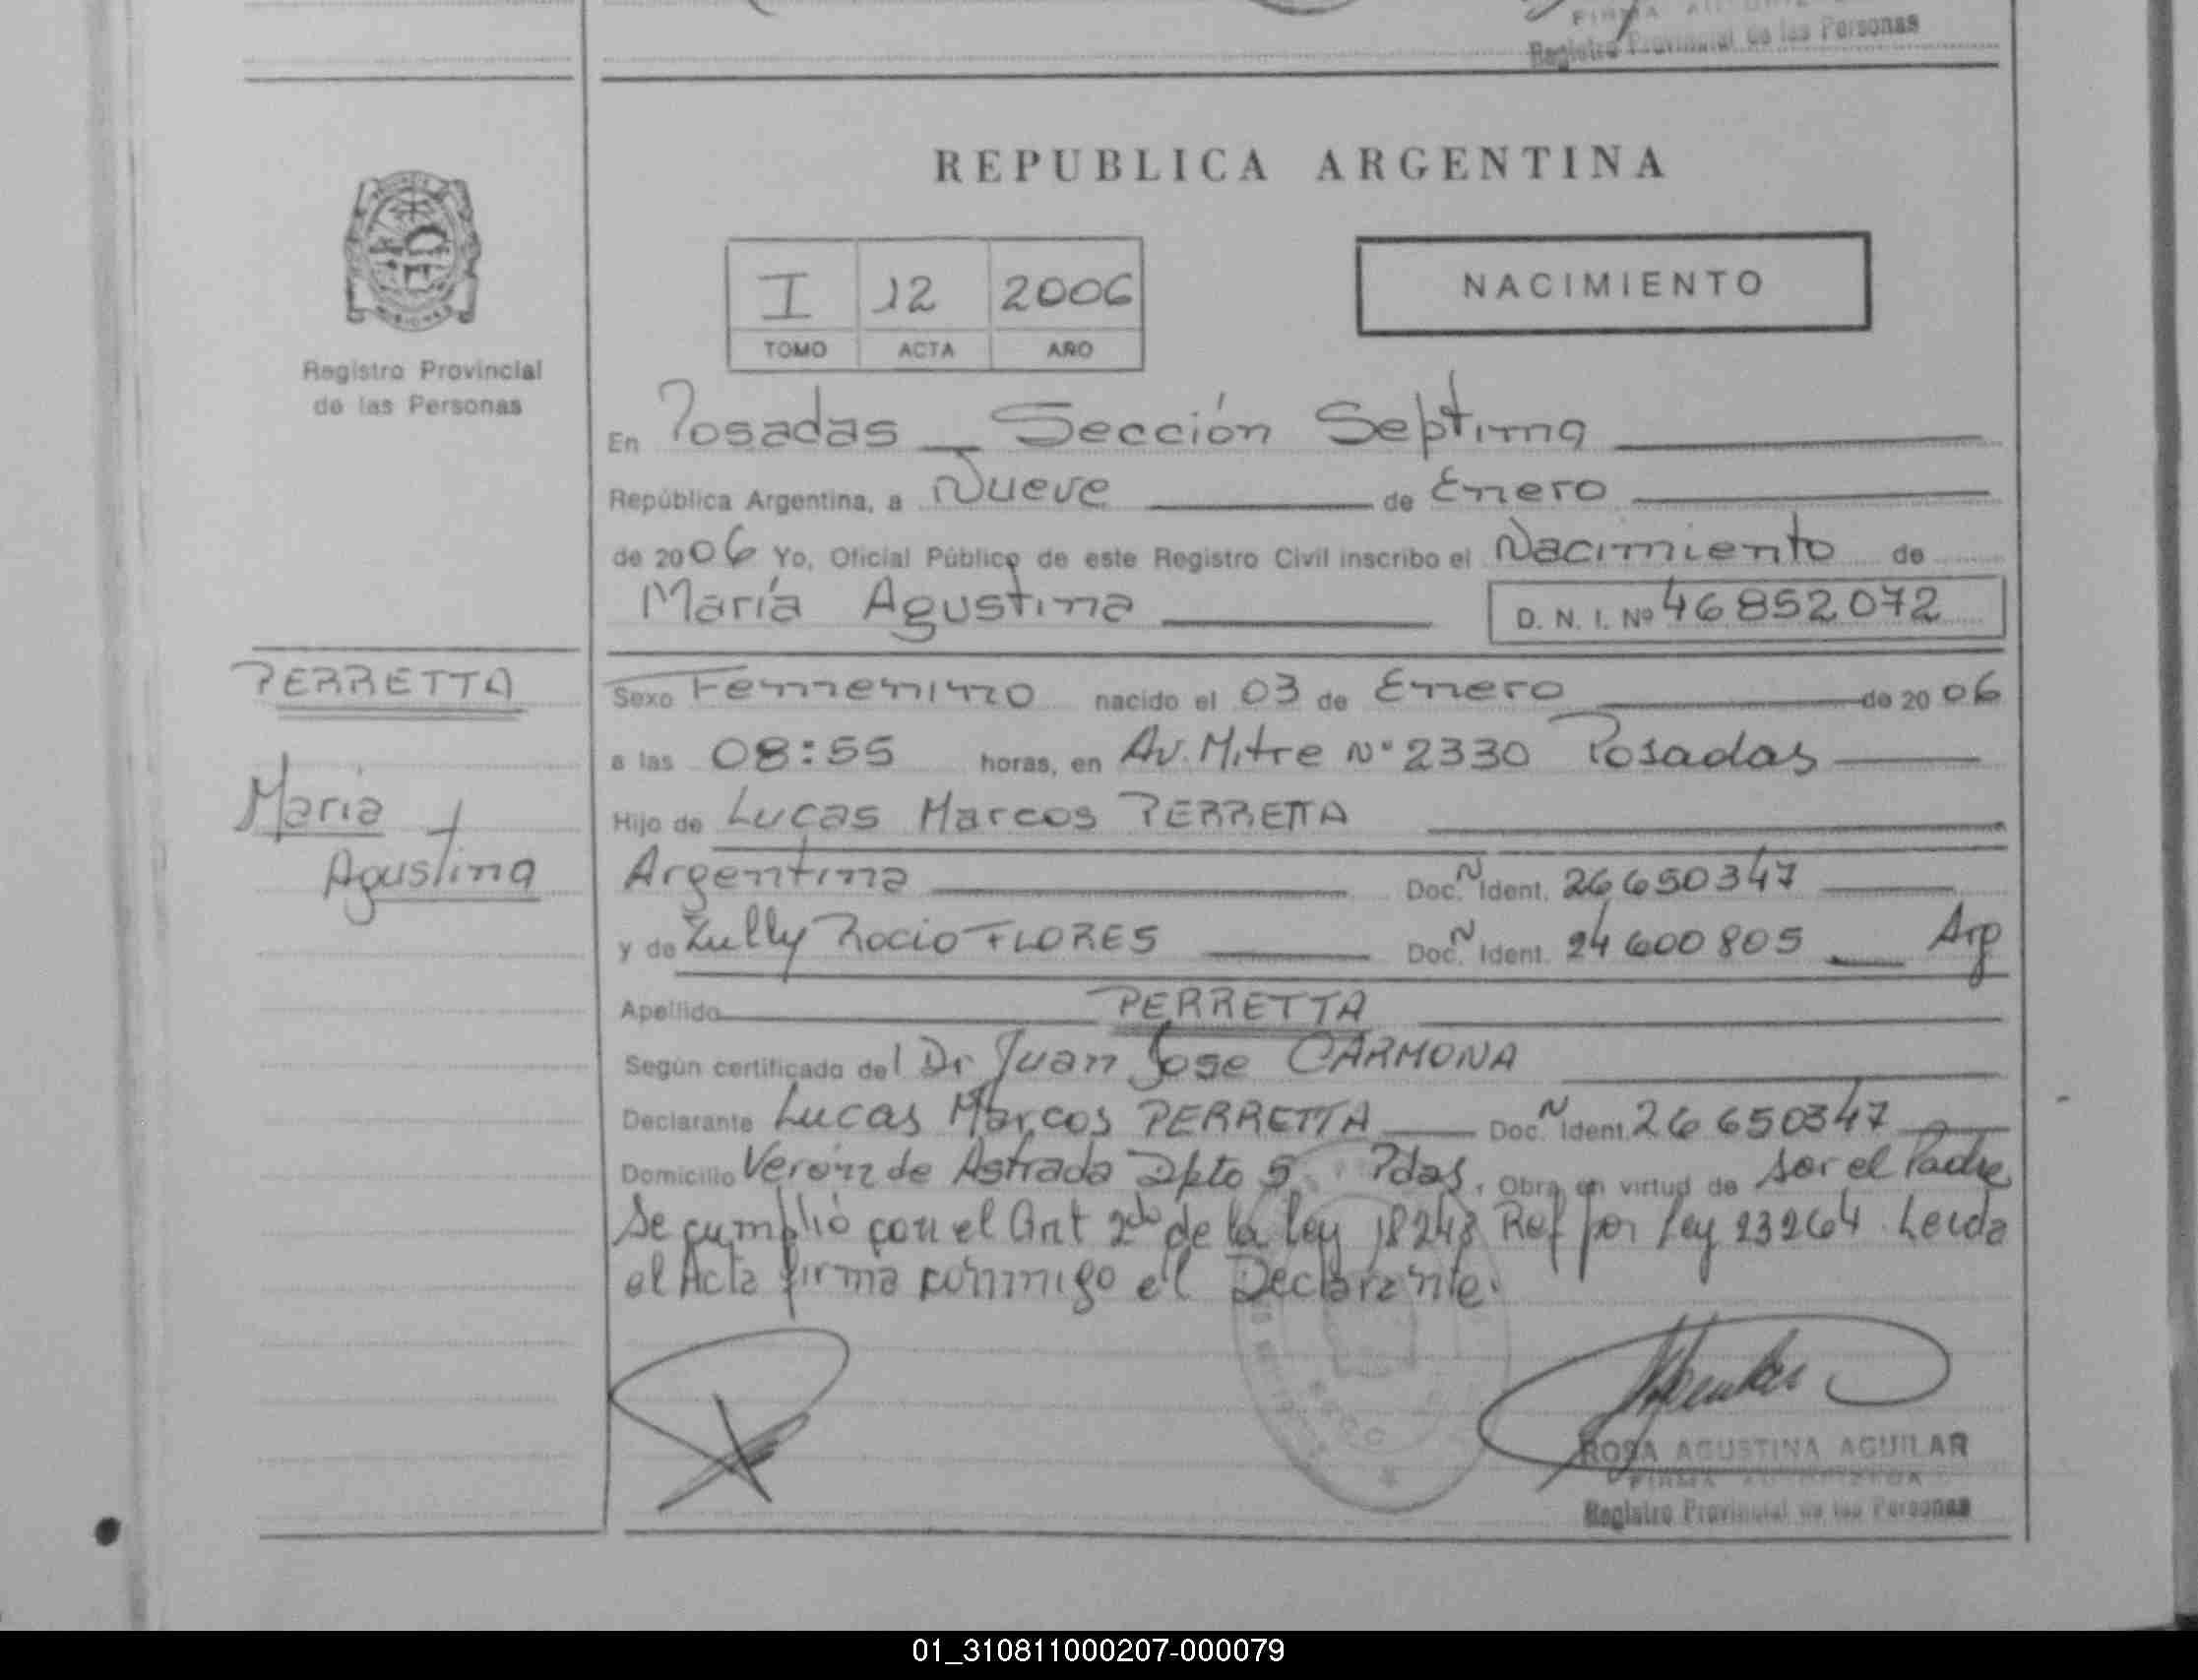 Registro Provincial de las Personas
REPUBLICA ARGENTINA
I 12 2006
TOMO ACTA AÑO
NACIMIENTO
MISIONES
Registro Provincial
de las Personas
En Posadas Sección Septima
República Argentina, a Nueve de Enero
de 2006 Yo, Oficial Público de este Registro Civil inscribo el Nacimiento de
María Agustina D. N. I. Nº 46852072
PERRETTA
María
Agustina
Sexo Femenino nacido el 03 de Enero de 2006
a las 08:55 horas, en Av. Mitre Nº 2330 Posadas
Hijo de Lucas Marcos PERRETTA
Argentina Doc. N Ident. 26650347
y de Zully Rocio FLORES Doc. N Ident. 24600805 Arg
Apellido PERRETTA
Según certificado del Dr Juan Jose CARMONA
Declarante Lucas Marcos PERRETTA Doc. N Ident. 26650347
Domicilio Verón de Astrada Dpto 5 Pdas. Obra en virtud de ser el Padre
Se cumplió con el Art 2do de la Ley 18248 Ref por Ley 23264. Leida
el Acta firma conmigo el Declarante.
ROSA AGUSTINA AGUILAR
FIRMA AUTORIZADA
Registro Provincial de las Personas
01_310811000207-000079